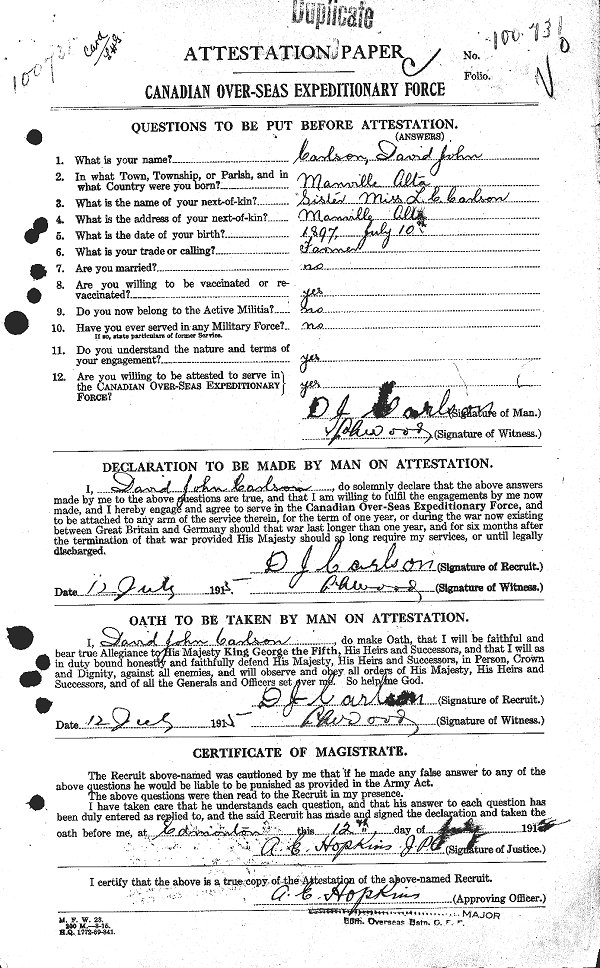 Duplicate
ATTESTATION PAPER
No. 100731
Folio.
CANADIAN OVER-SEAS EXPEDITIONARY FORCE
QUESTIONS TO BE PUT BEFORE ATTESTATION.
(ANSWERS)
1. What is your name? Carlson, David John
2. In what Town, Township, or Parish, and in
what Country were you born? Manville Alta
3. What is the name of your next-of-kin? Sister Miss L. C. Carlson
4. What is the address of your next-of-kin? Manville Alta
5. What is the date of your birth? 1897 July 10th
6. What is your trade or calling? Farmer
7. Are you married? no
8. Are you willing to be vaccinated or re-
vaccinated? yes
9. Do you now belong to the Active Militia? no
10. Have you ever served in any Military Force? no
If so, state particulars of former Service.
11. Do you understand the nature and terms of
your engagement? yes
12. Are you willing to be attested to serve in
the CANADIAN OVER-SEAS EXPEDITIONARY
FORCE? yes
D J Carlson (Signature of Man.)
(Signature of Witness.)
DECLARATION TO BE MADE BY MAN ON ATTESTATION.
I, David John Carlson, do solemnly declare that the above answers
made by me to the above questions are true, and that I am willing to fulfil the engagements by me now
made, and I hereby engage and agree to serve in the Canadian Over-Seas Expeditionary Force, and
to be attached to any arm of the service therein, for the term of one year, or during the war now existing
between Great Britain and Germany should that war last longer than one year, and for six months after
the termination of that war provided His Majesty should so long require my services, or until legally
discharged.
D J Carlson (Signature of Recruit.)
Date 12 July 1915 (Signature of Witness.)
OATH TO BE TAKEN BY MAN ON ATTESTATION.
I, David John Carlson, do make Oath, that I will be faithful and
bear true Allegiance to His Majesty King George the Fifth, His Heirs and Successors, and that I will as
in duty bound honestly and faithfully defend His Majesty, His Heirs and Successors, in Person, Crown
and Dignity, against all enemies, and will observe and obey all orders of His Majesty, His Heirs and
Successors, and of all the Generals and Officers set over me. So help me God.
D J Carlson (Signature of Recruit.)
Date 12 July 1915 (Signature of Witness.)
CERTIFICATE OF MAGISTRATE.
The Recruit above-named was cautioned by me that if he made any false answer to any of the
above questions he would be liable to be punished as provided in the Army Act.
The above questions were then read to the Recruit in my presence.
I have taken care that he understands each question, and that his answer to each question has
been duly entered as replied to, and the said Recruit has made and signed the declaration and taken the
oath before me, at Edmonton this 12th day of July 1915
A. C. Hopkins J.P. (Signature of Justice.)
I certify that the above is a true copy of the Attestation of the above-named Recruit.
A. C. Hopkins (Approving Officer.)
MAJOR
Overseas Batn. C. E. F.
M. F. W. 23.
200 M.—3-15.
H.Q. 1772-39-841.